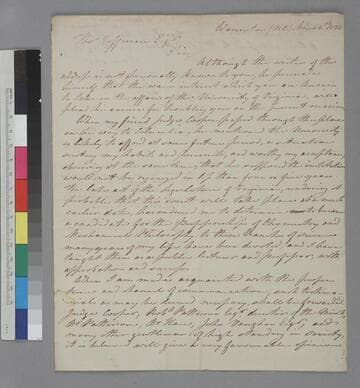 Tho. Jefferson Esqr.
Sir,
Although the writer of this
address is not personally known to you, he persuades
himself that the warm interest which you are known
to take in the affairs of the University of Virginia, will
plead his excuse for troubling you on the present occasion
When my friend Judge Cooper passed through this place
on his way to Columbia, he mentioned the University
as likely to afford at some future period, a situation
suiting my habits and pursuits, and worthy my acceptance,
observing at the same time that he supposed the institution
would not be organized in less than two or four years
The late act of the Legislature of Virginia, rendering it
probable that this event will take place at a much
earlier date, has induced me to determine to become
a candidate for the professorship of Chemistry and
Mechanical Philosophy, to these branches of science
many years of my life have been devoted, and I have
taught them as a public lecturer and professor, with
approbation and success.
When I am made acquainted with the proper
time and channel of communication, such testimo-
nials as may be deemed necessary, shall be forwarded.
Judge Cooper, Robt. Patterson Esqr. director of the Mint,
Dr. Patterson, Dr. Hare, John Vaughan Esqr. and
many other gentlemen of high standing in society,
it is believed will give a very favourable opinion